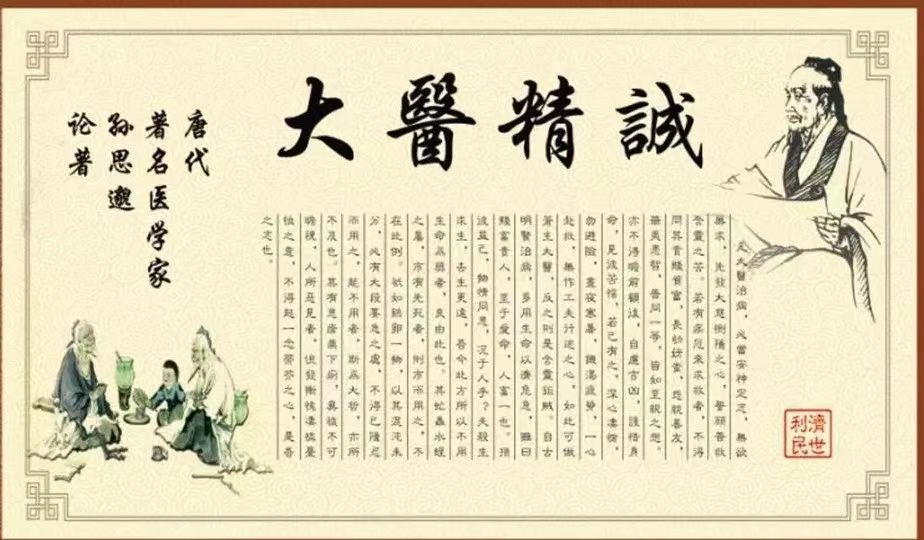 大醫精誠
唐代
著名医学家
孙思邈
论著
凡大醫治病，必當安神定志，無欲
無求，先發大慈惻隱之心，誓願普救
含靈之苦。若有疾厄來求救者，不得
問其貴賤貧富，長幼妍蚩，怨親善友，
華夷愚智，普同一等，皆如至親之想。
亦不得瞻前顧後，自慮吉凶，護惜身
命，見彼苦惱，若己有之，深心凄愴，
勿避險，晝夜寒暑，饑渴疲勞，一心
赴救，無作工夫行迹之心。如此可做
蒼生大醫，反之則是含靈巨賊。自古
明賢治病，多用生命以濟危急，雖曰
賤畜貴人，至于愛命，人畜一也。損
彼益己，物情同患，况于人乎？夫殺生
求生，去生更遠，吾今此方所以不用
生命爲藥者，良由此也。其虻蟲水蛭
之屬，市有先死者，則市而用之，不
在此例。祇如雞卵一物，以其混沌未
分，必有大段要急之處，不得已隱忍
而用之，能不用者，斯爲大哲，亦所
不及也。其有患瘡痍下痢，臭穢不可
瞻視，人所惡見者，但發慚愧凄憐憂
恤之意，不得起一念蒂芥之心，是吾
之志也。
濟世
利民